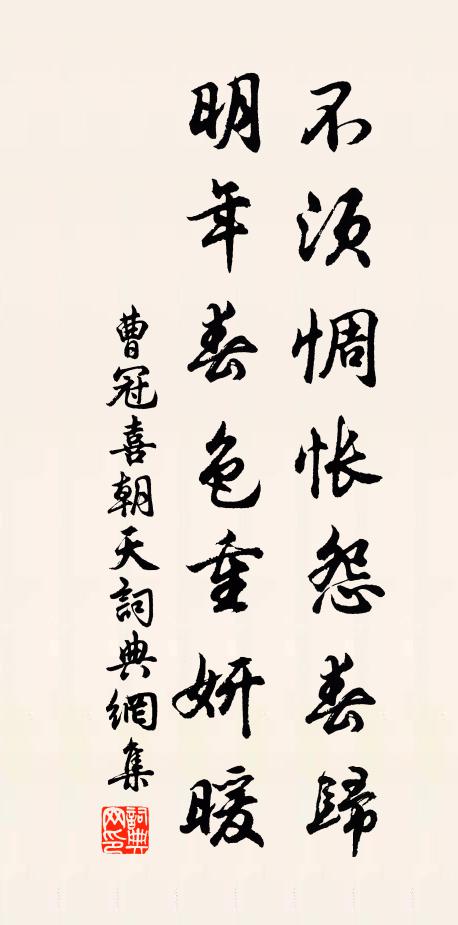 不須惆悵怨春歸
明年春色重妍暖
曹冠喜朝天詞典網集
詞典網印